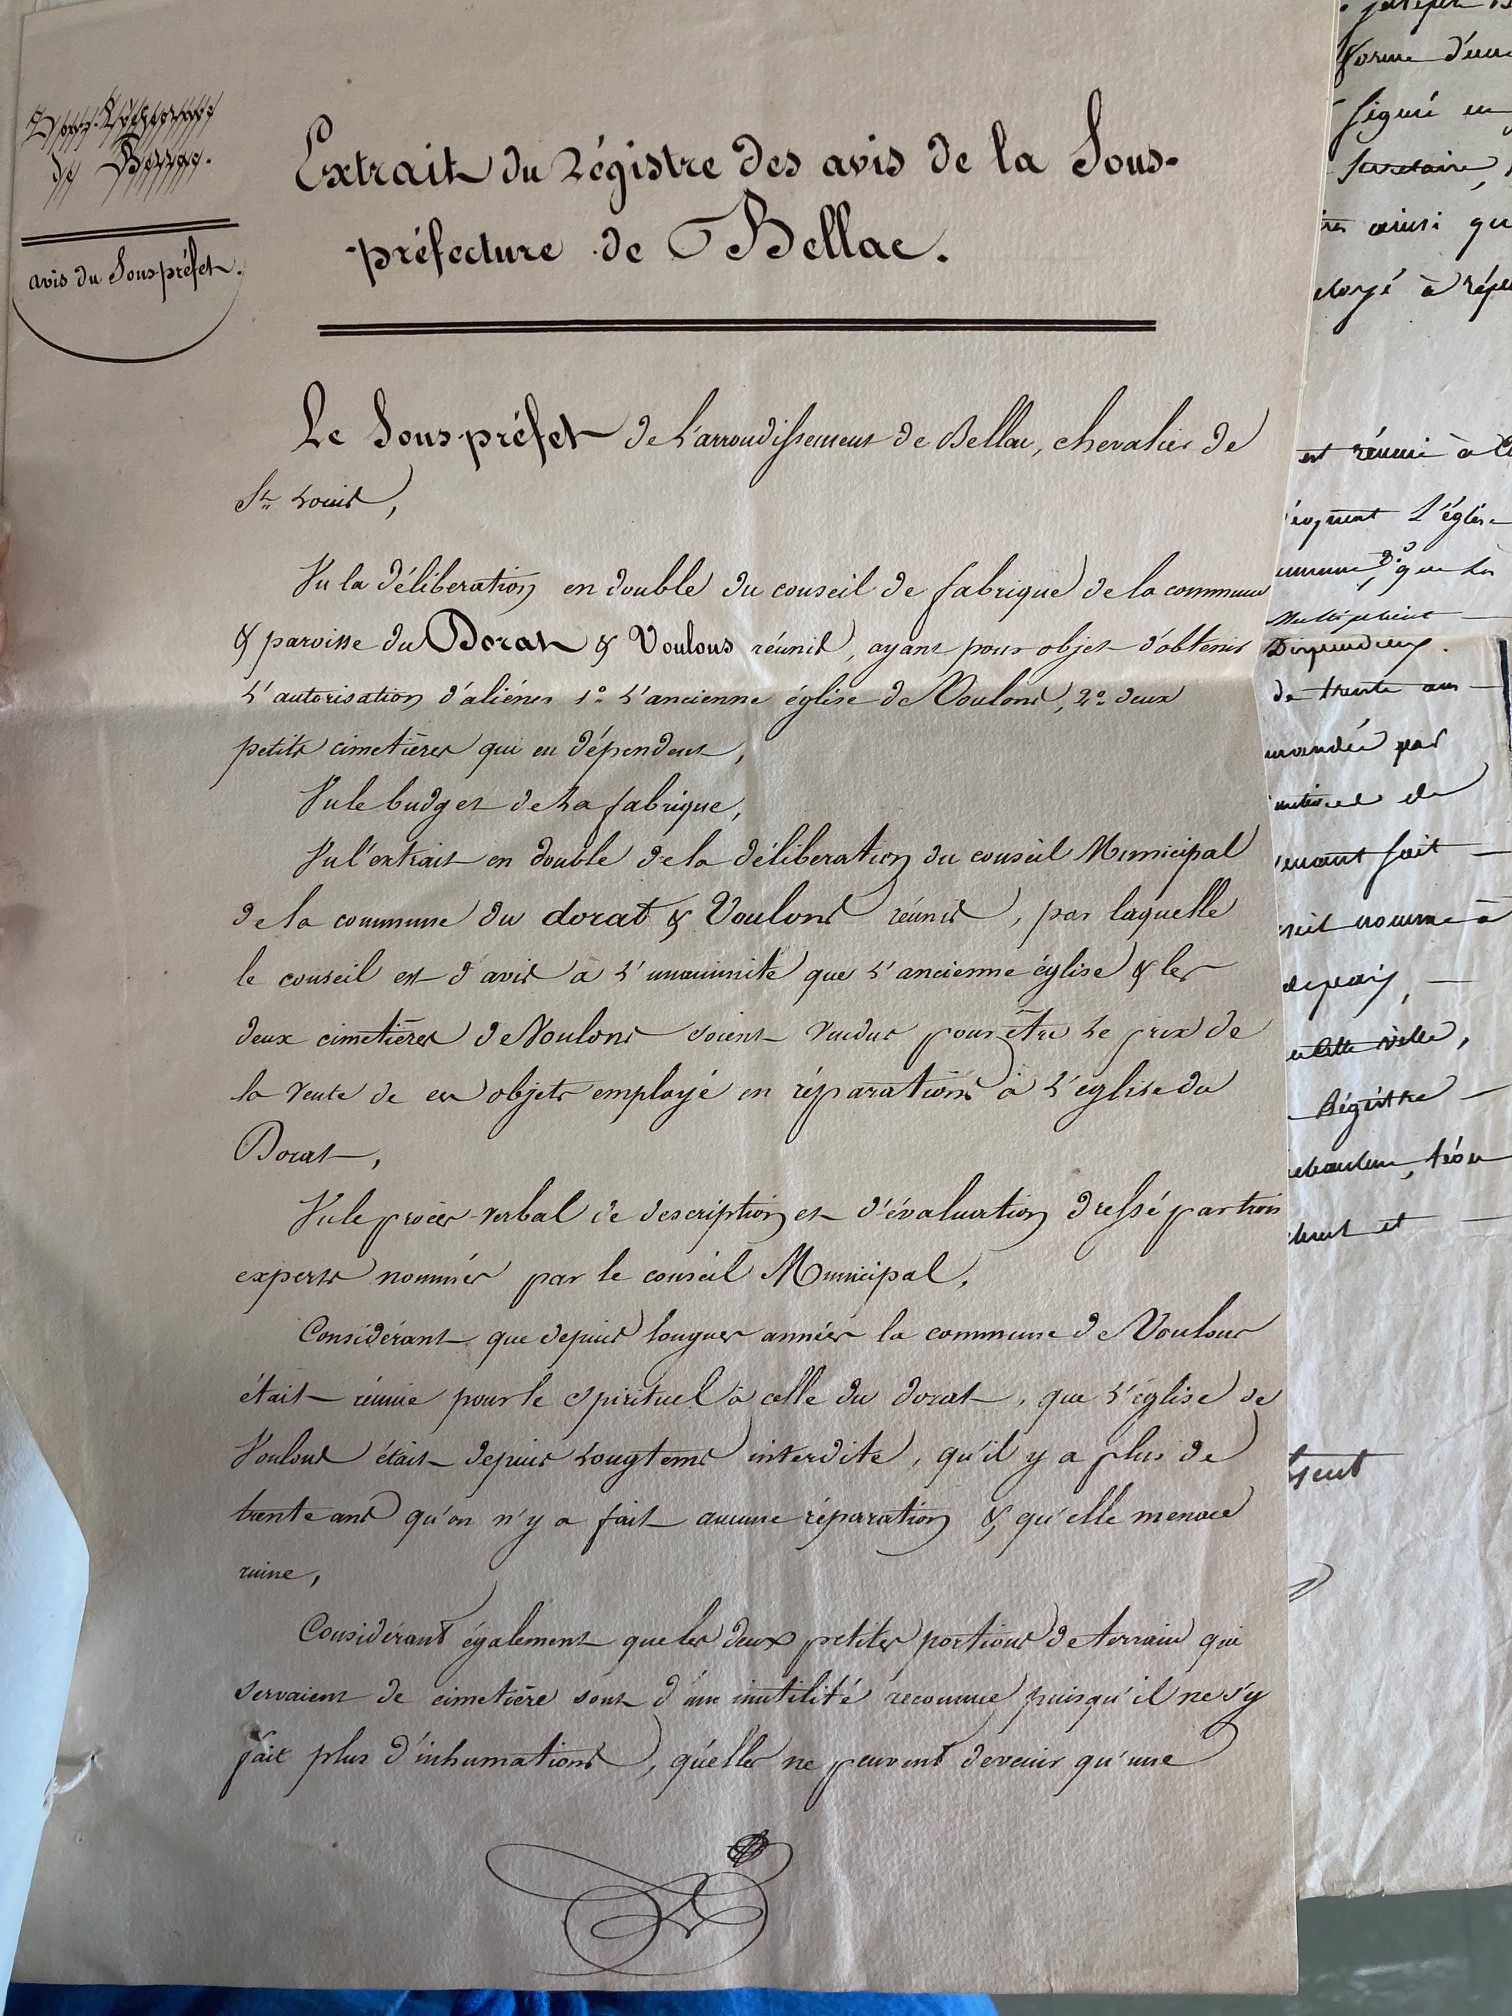 Sous-Préfecture
de Bellac.
avis du Sous préfet.
Extrait du Régistre des avis de la Sous-
-préfecture de Bellac.
Le Sous-préfet de l'arrondissement de Bellac, chevalier de
St. Louis,
Vu la déliberation en double du conseil de fabrique de la commune
& paroisse du Dorat & Voulons réunis, ayant pour objet d'obtenir
l'autorisation d'aliéner 1º l'ancienne église de Voulons, 2º deux
petits cimetières qui en dépendent,
Vu le budget de la fabrique,
Vu l'extrait en double de la déliberation du conseil Municipal
de la commune du dorat & Voulons réunis, par laquelle
le conseil est d'avis à l'unanimité que l'ancienne église & les
deux cimetières de Voulons soient vendus pour être le prix de
la vente de ces objets employé en réparations à l'eglise du
Dorat,
Vu le procès-verbal de description et d'évaluation dressé par trois
experts nommés par le conseil Municipal.
Considérant que depuis longues années la commune de Voulons
était réunie pour le spirituel à celle du dorat, que l'église de
Voulons était depuis longtems interdite, qu'il y a plus de
trente ans qu'on n'y a fait aucune réparation & qu'elle menace
ruine,
Considérant également que les deux petites portions de terrain qui
servaient de cimetière sont d'une inutilité reconnue puisqu'il ne s'y
fait plus d'inhumations, qu'elles ne peuvent devenir qu'une
forme d'une
signé en
Secretaire,
ainsi qu
à répa
est réunie à
l'église
que la
de trente ans
mandée par
de
fait
nommé à
cette ville,
Régistre
et